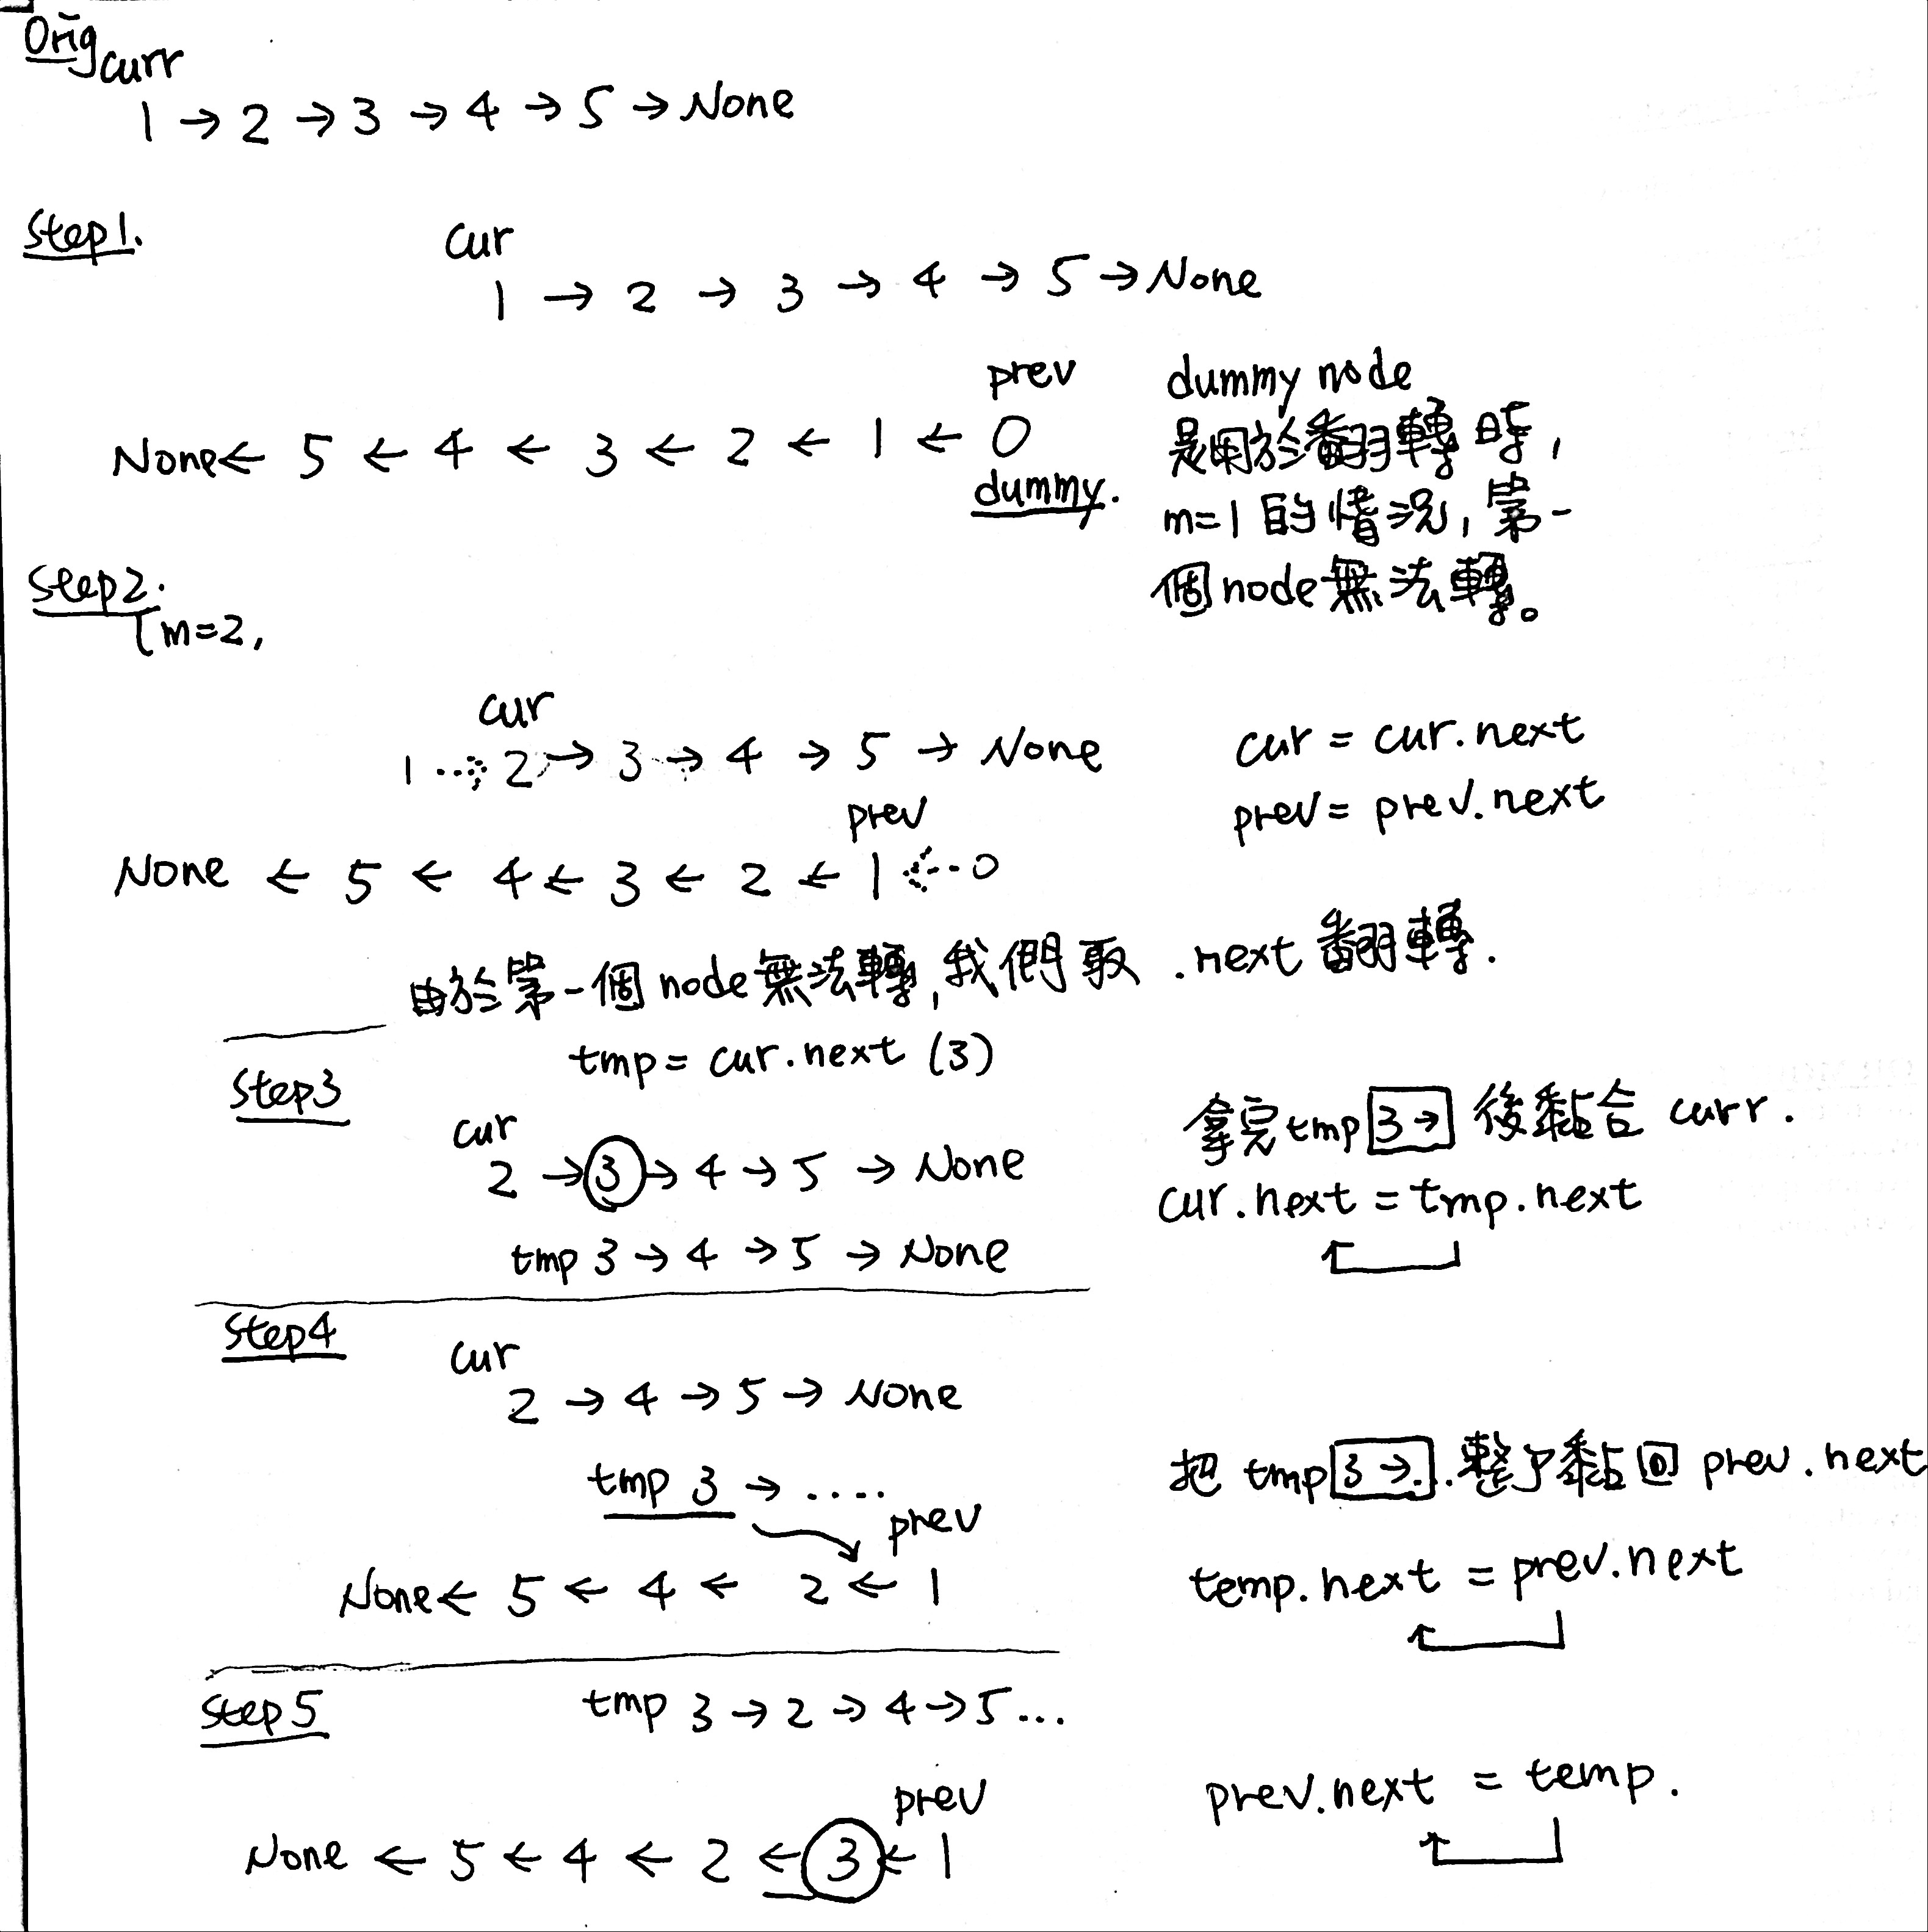 Orig
curr
1 → 2 → 3 → 4 → 5 → None
Step1.
cur
1 → 2 → 3 → 4 → 5 → None
prev
None ← 5 ← 4 ← 3 ← 2 ← 1 ← 0
dummy.
dummy node
是用於翻轉時,
m=1 的情況, 第一
個 node 無法轉。
Step2.
m=2,
cur
1 ⇢ 2 → 3 → 4 → 5 → None
cur = cur.next
prev = prev.next
prev
None ← 5 ← 4 ← 3 ← 2 ← 1 ⇠ 0
由於第一個 node 無法轉, 我們取 .next 翻轉.
Step3
tmp = cur.next (3)
cur
2 → 3 → 4 → 5 → None
tmp 3 → 4 → 5 → None
拿完 tmp 3→ 後黏合 curr.
cur.next = tmp.next
Step4
cur
2 → 4 → 5 → None
tmp 3 → ....
prev
None ← 5 ← 4 ← 2 ← 1
把 tmp 3 →... 整了黏回 prev.next
temp.next = prev.next
Step5
tmp 3 → 2 → 4 → 5 ...
prev
None ← 5 ← 4 ← 2 ← 3 ← 1
prev.next = temp.